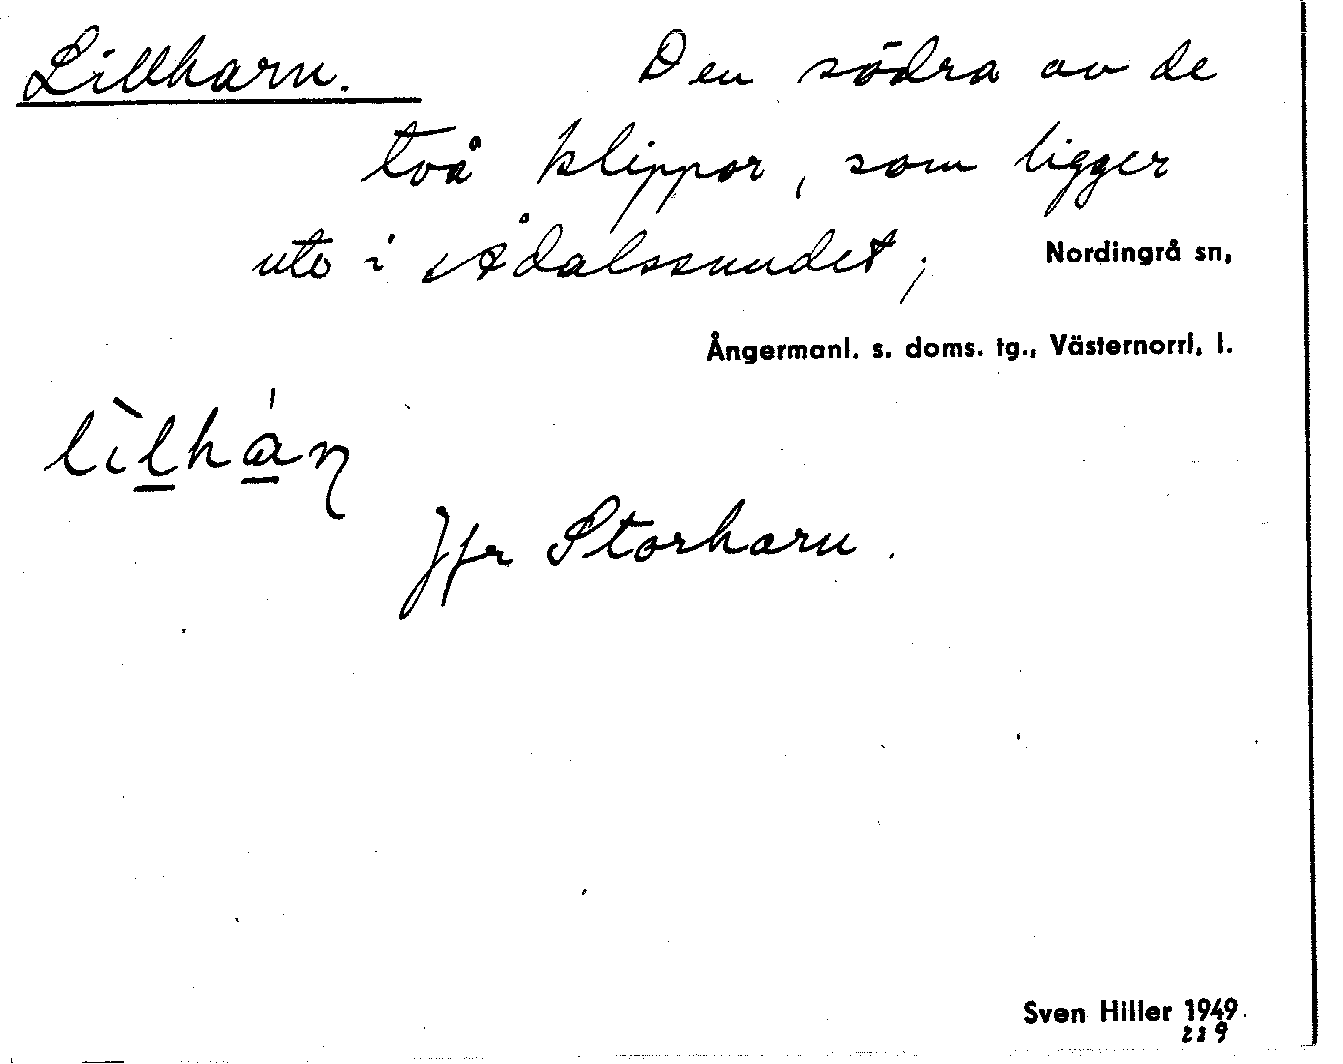 Lillharn. Den södra av de
två klippor, som ligger
ute i Ådalssundet, Nordingrå sn,
Ångermanl. s. doms. tg., Västernorrl. l.
lìlhán
Jfr Storharn.
Sven Hiller 1949
229